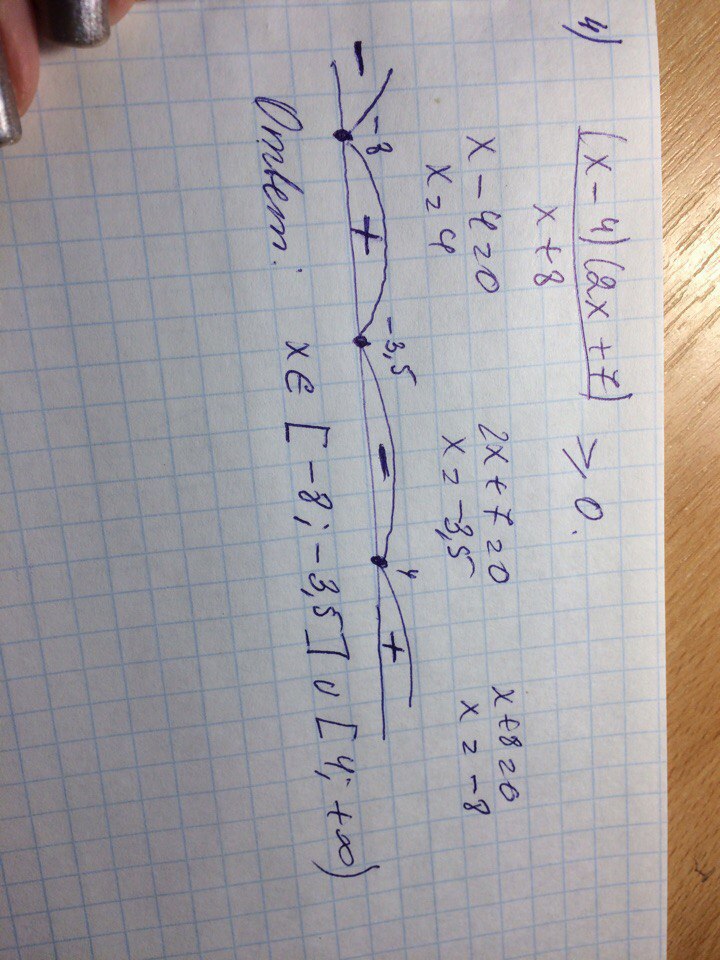 4)
(x-4)(2x+7)
x+8
≥0.
x-4=0 2x+7=0 x+8=0
x=4 x=-3,5 x=-8
- -8 + -3,5 - 4 +
Ответ: x∈[-8;-3,5]∪[4;+∞)